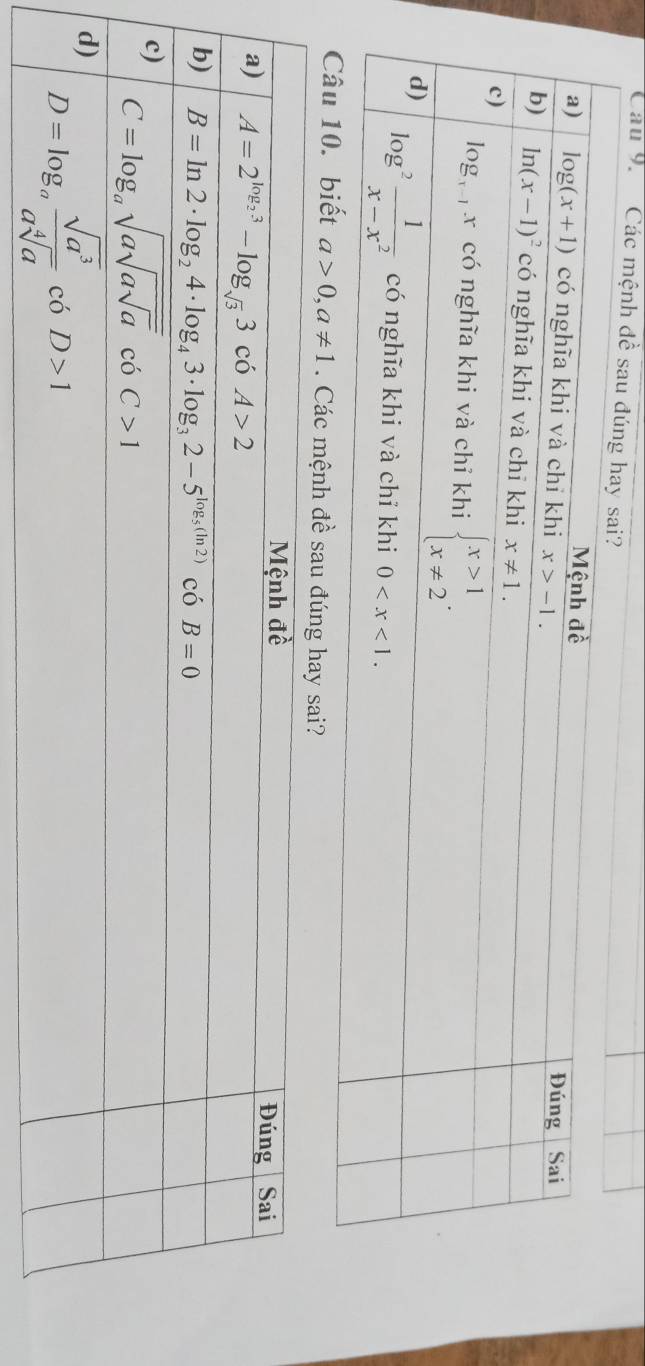 Câu 9. Các mệnh đề sau đúng hay sai?
Mệnh đề Đúng Sai
a) log(x+1) có nghĩa khi và chỉ khi x > −1.
b) ln(x−1)² có nghĩa khi và chỉ khi x ≠ 1.
c) logₓ₋₁ x có nghĩa khi và chỉ khi { x > 1; x ≠ 2 .
d) log² 1/(x−x²) có nghĩa khi và chỉ khi 0 < x < 1.
Câu 10. biết a > 0, a ≠ 1. Các mệnh đề sau đúng hay sai?
Mệnh đề Đúng Sai
a) A = 2^(log₂ 3) − log_√3 3 có A > 2
b) B = ln 2 · log₂ 4 · log₄ 3 · log₃ 2 − 5^(log₅(ln 2)) có B = 0
c) C = logₐ √(a√(a√a)) có C > 1
d) D = logₐ √(a³)/(a ⁴√a) có D > 1